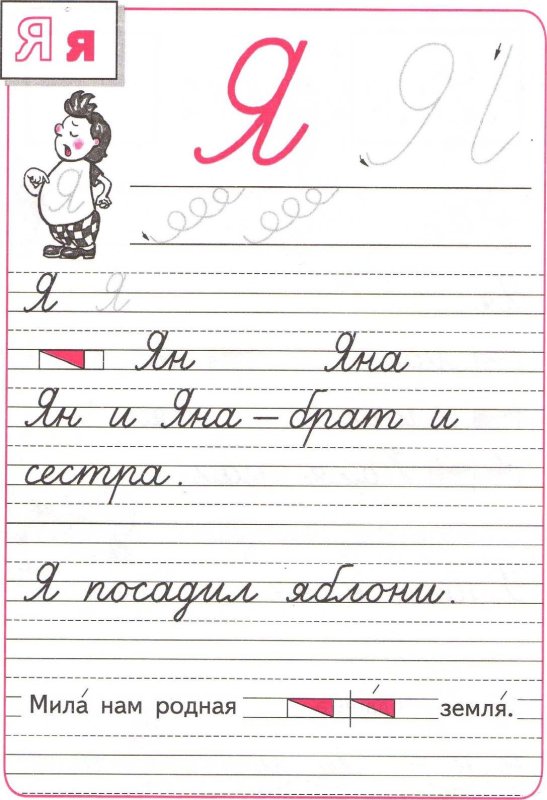 Я я
Я Я
Я
Я Я
Ян Яна
Ян и Яна – брат и
сестра.
Я посадил яблони.
Мила́ нам родная земля́.